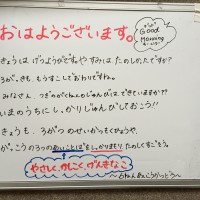 おはようございます。
Good
Morning
きょうは、げつようびですね やすみは、たのしかったですか?
3がつも、もうすこしでおわりですね。
みなさん、つぎのがくねんのじゅんびは、できていますか??
いまのうちに しっかりじゅんびしておこう!!
きょうも、3がつのせいかつもくひょうや、
がっこうの3つのあいことばをしっかりまもり、たのしくすごそう。
やさしく、かしこく、げんきなこ